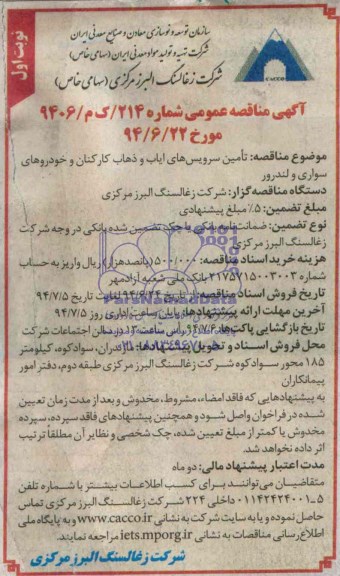 نوبت اول
سازمان توسعه و نوسازی معادن و صنایع معدنی ایران
شرکت تهیه و تولید مواد معدنی ایران (سهامی خاص)
شرکت زغالسنگ البرز مرکزی (سهامی خاص)
CACCO
آگهی مناقصه عمومی شماره ۲۱۴/ک م/۹۴۰۶
مورخ ۹۴/۶/۲۲
موضوع مناقصه: تأمین سرویس‌های ایاب و ذهاب کارکنان و خودروهای
سواری و لندرور
دستگاه مناقصه گزار: شرکت زغالسنگ البرز مرکزی
مبلغ تضمین: ۵٪ مبلغ پیشنهادی
نوع تضمین: ضمانتنامه بانکی یا چک تضمین شده بانکی در وجه شرکت
زغالسنگ البرز مرکزی
هزینه خرید اسناد مناقصه: ۵۰۰/۰۰۰ (پانصدهزار) ریال واریز به حساب
شماره ۲۱۷۵۷۱۵۰۰۳۰۰۳ بانک ملی شعبه آزادمهر
تاریخ فروش اسناد مناقصه: از تاریخ ۹۴/۶/۲۴ لغایت تاریخ ۹۴/۷/۵
آخرین مهلت ارائه پیشنهادها: پایان ساعت اداری روز ۹۴/۷/۵
تاریخ بازگشایی پاکت‌ها: ۹۴/۷/۶ راس ساعت ۱۳ در سالن اجتماعات شرکت
محل فروش اسناد و تحویل پیشنهادها: مازندران، سوادکوه، کیلومتر
۱۸۵ محور سوادکوه شرکت زغالسنگ البرز مرکزی طبقه دوم، دفتر امور
پیمانکاران
به پیشنهادهایی که فاقد امضاء، مشروط، مخدوش و بعد از مدت زمان تعیین
شده در فراخوان واصل شود و همچنین پیشنهادهای فاقد سپرده، سپرده
مخدوش یا کمتر از مبلغ تعیین شده، چک شخصی و نظایر آن مطلقا ترتیب
اثر داده نخواهد شد.
مدت اعتبار پیشنهاد مالی: دو ماه
متقاضیان می‌توانند برای کسب اطلاعات بیشتر با شماره تلفن
۵_۰۱۱۴۲۴۲۴۰۰۱ داخلی ۲۲۴ شرکت زغالسنگ البرز مرکزی تماس
حاصل نموده و یا به سایت شرکت به نشانی www.cacco.ir و به پایگاه ملی
اطلاع رسانی مناقصات به نشانی iets.mporg.ir مراجعه نمایند.
شرکت زغالسنگ البرز مرکزی